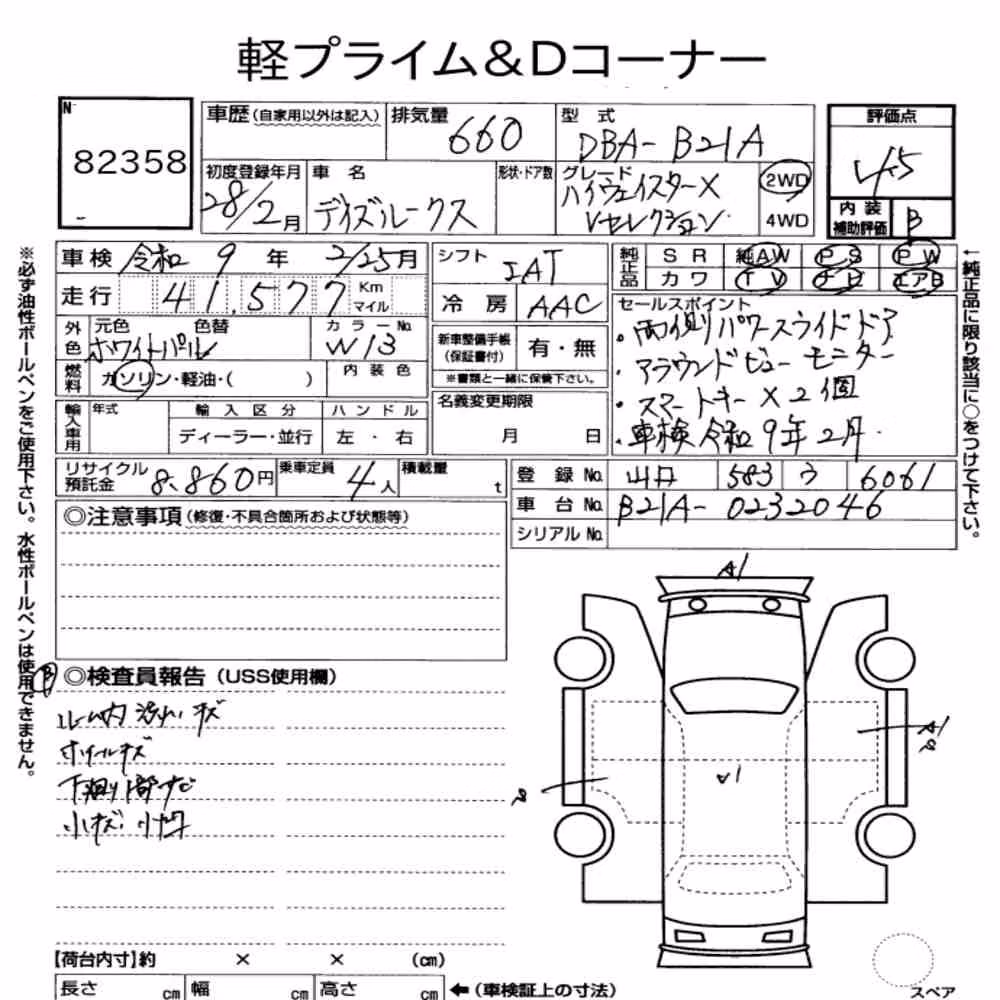 軽プライム&Dコーナー
No 82358
車歴 (自家用以外は記入) 排気量 660 型式 DBA-B21A 評価点 4.5
初度登録年月 28/2月 車名 デイズルークス 形状・ドア数 グレード ハイウェイスターX Vセレクション 2WD 4WD
内装補助評価 B
車検 令和 9 年 2/25月 シフト IAT 純正品 SR 純AW PS PW
走行 41,577 Km マイル 冷房 AAC カワ TV ナビ エアB
外色 元色 色替 ホワイトパール カラーNo. W13 新車整備手帳 (保証書付) 有・無
燃料 ガソリン・軽油・( ) 内装色 ※書類と一緒に保管下さい。
セールスポイント
・両側パワースライドドア
・アラウンドビューモニター
・スマートキー×2個
・車検令和9年2月.
輸入車用 年式 輸入区分 ハンドル 名義変更期限
ディーラー・並行 左・右 月 日
リサイクル預託金 8,860円 乗車定員 4人 積載量 t 登録No. 583 ウ 6061
車台No. B21A-0232046
シリアルNo.
◎注意事項 (修復・不具合箇所および状態等)
A1
Ⓑ ◎検査員報告 (USS使用欄)
ルーム内 汚れ・キズ
ホイールキズ
下廻り1部サビ
小キズ・小凹
A1
S
S
【荷台内寸】約 × × (cm)
長さ cm 幅 cm 高さ cm ←(車検証上の寸法)
スペア
※必ず油性ボールペンをご使用下さい。水性ボールペンは使用できません。
←純正品に限り該当に○をつけて下さい。